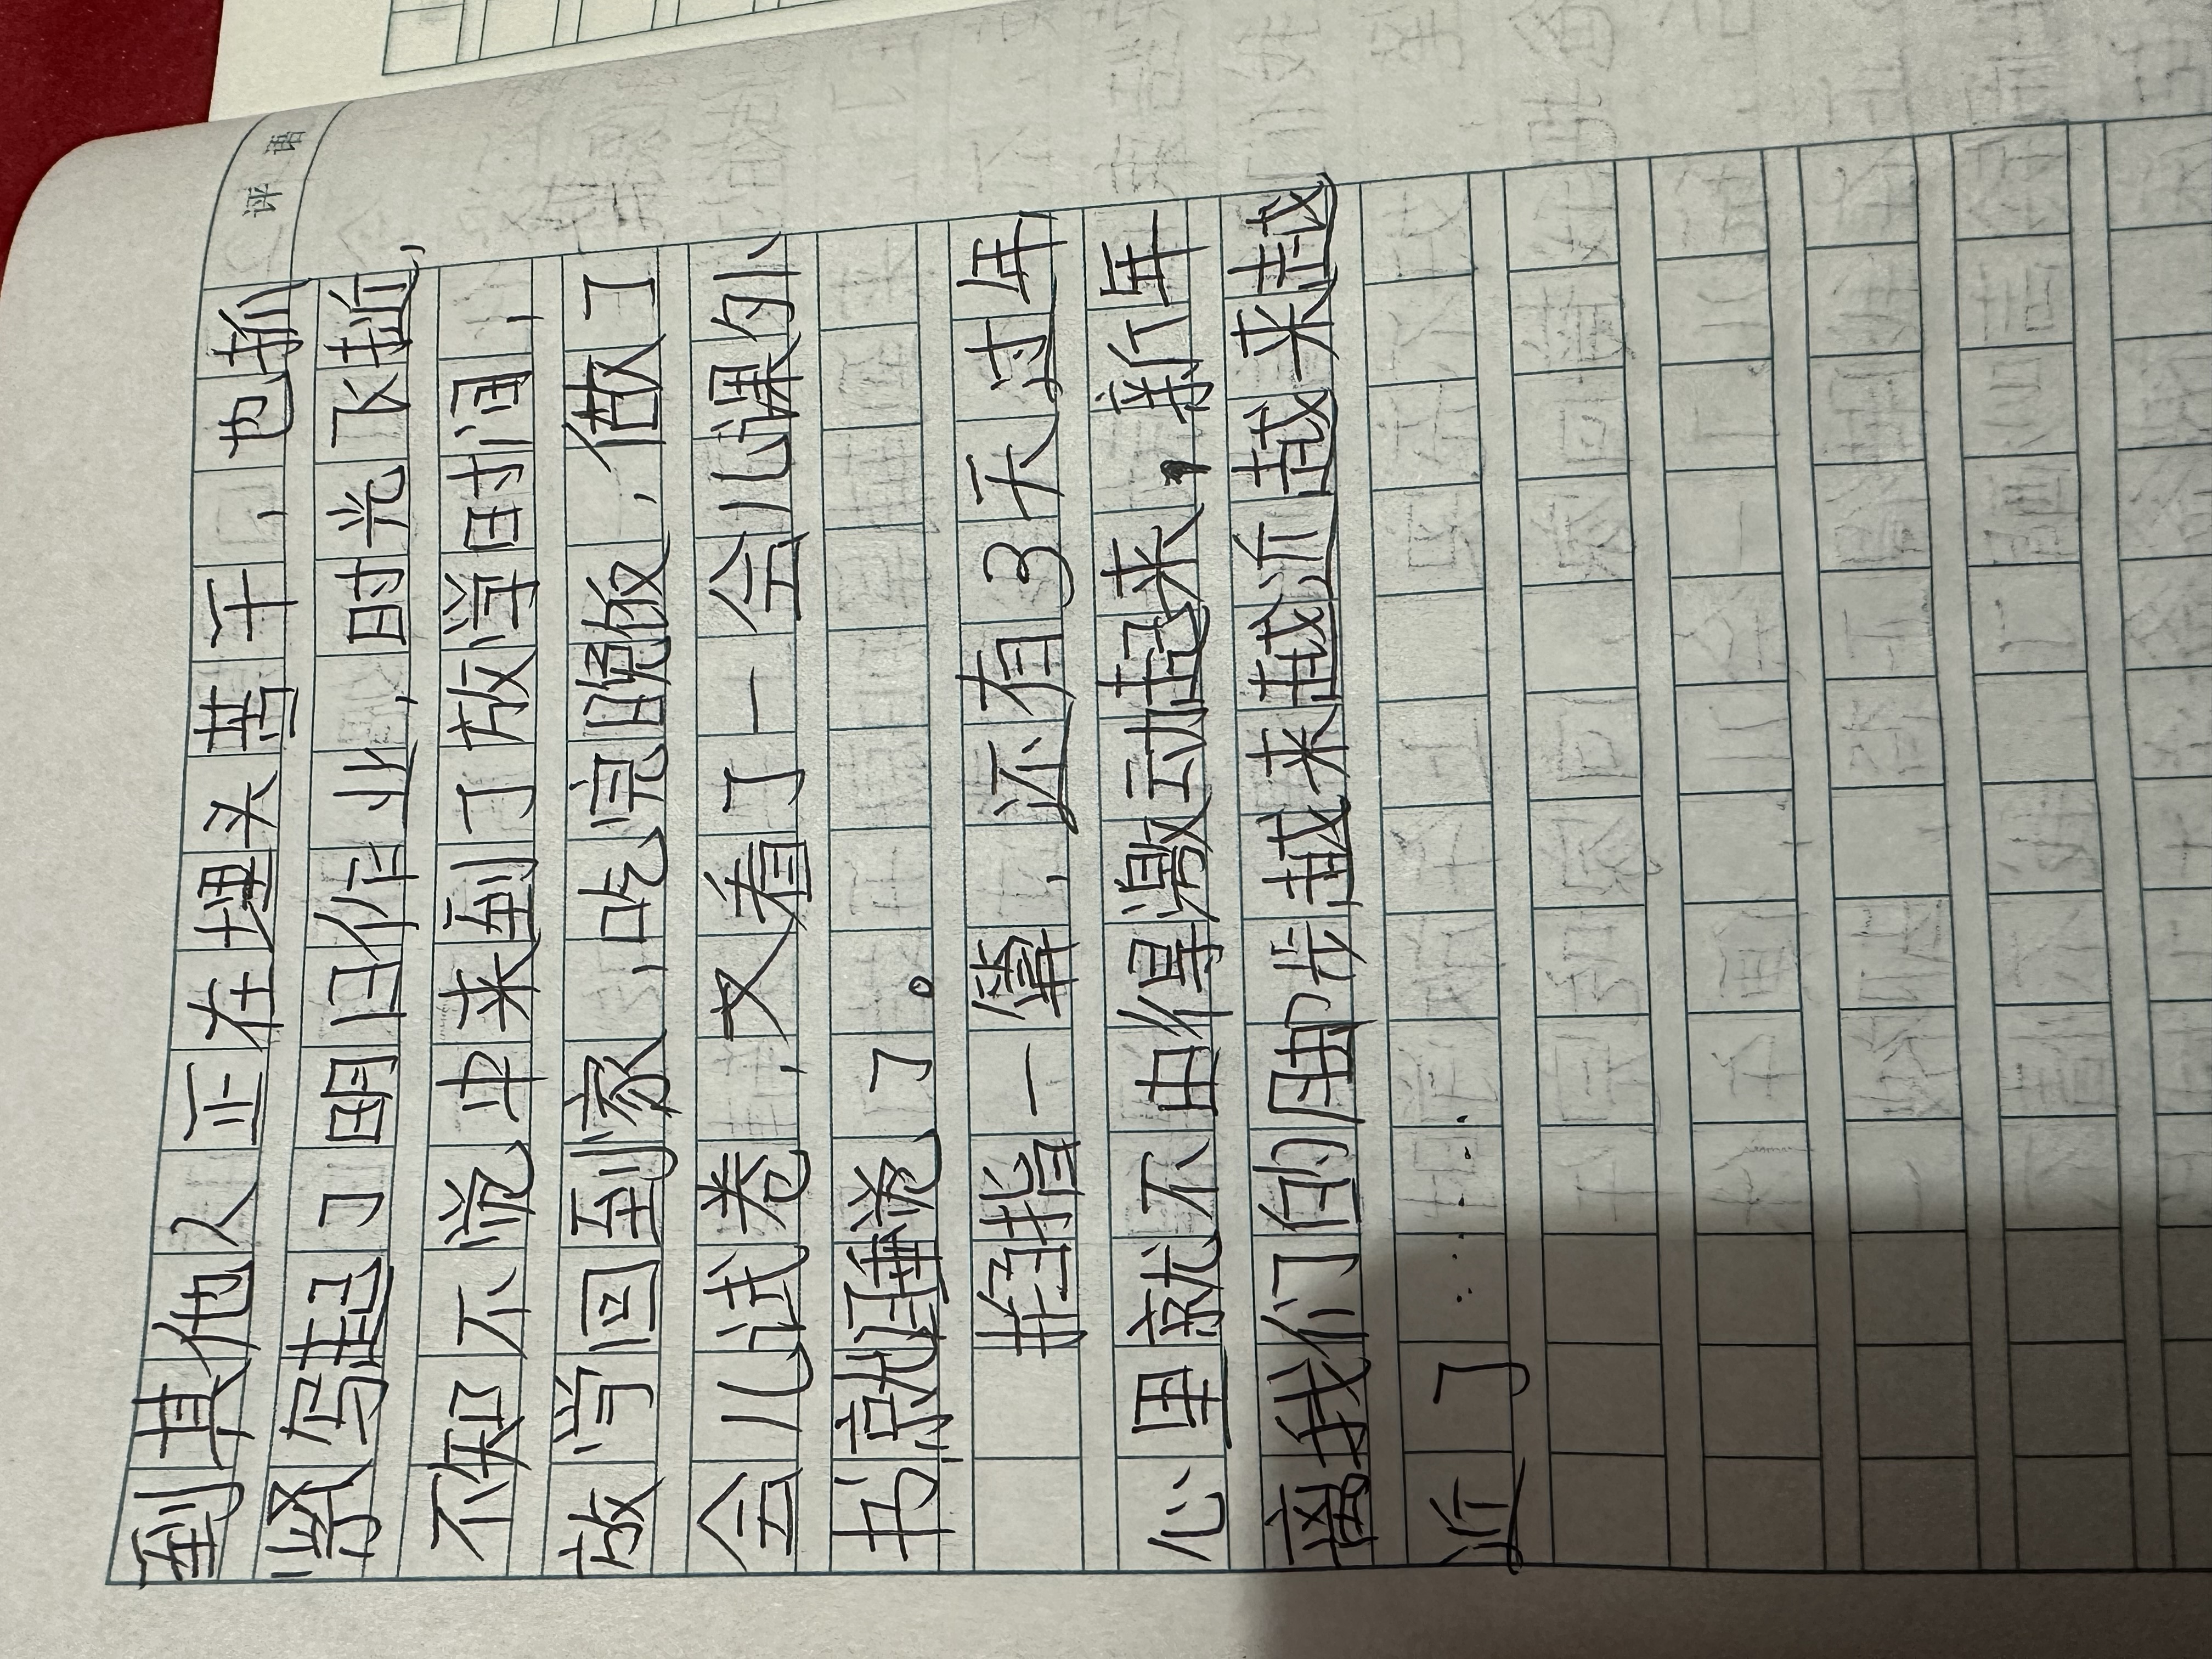 评语
到其他人正在埋头苦干，也抓
紧写起了明日作业，时光飞逝，
不知不觉中来到了放学时间，
放学回到家，吃完晚饭，做了
会儿试卷，又看了一会儿课外
书就睡觉了。
掐指一算，还有3天过年
心里就不由得激动起来，新年
离我们的脚步越来越近越来越
近了……